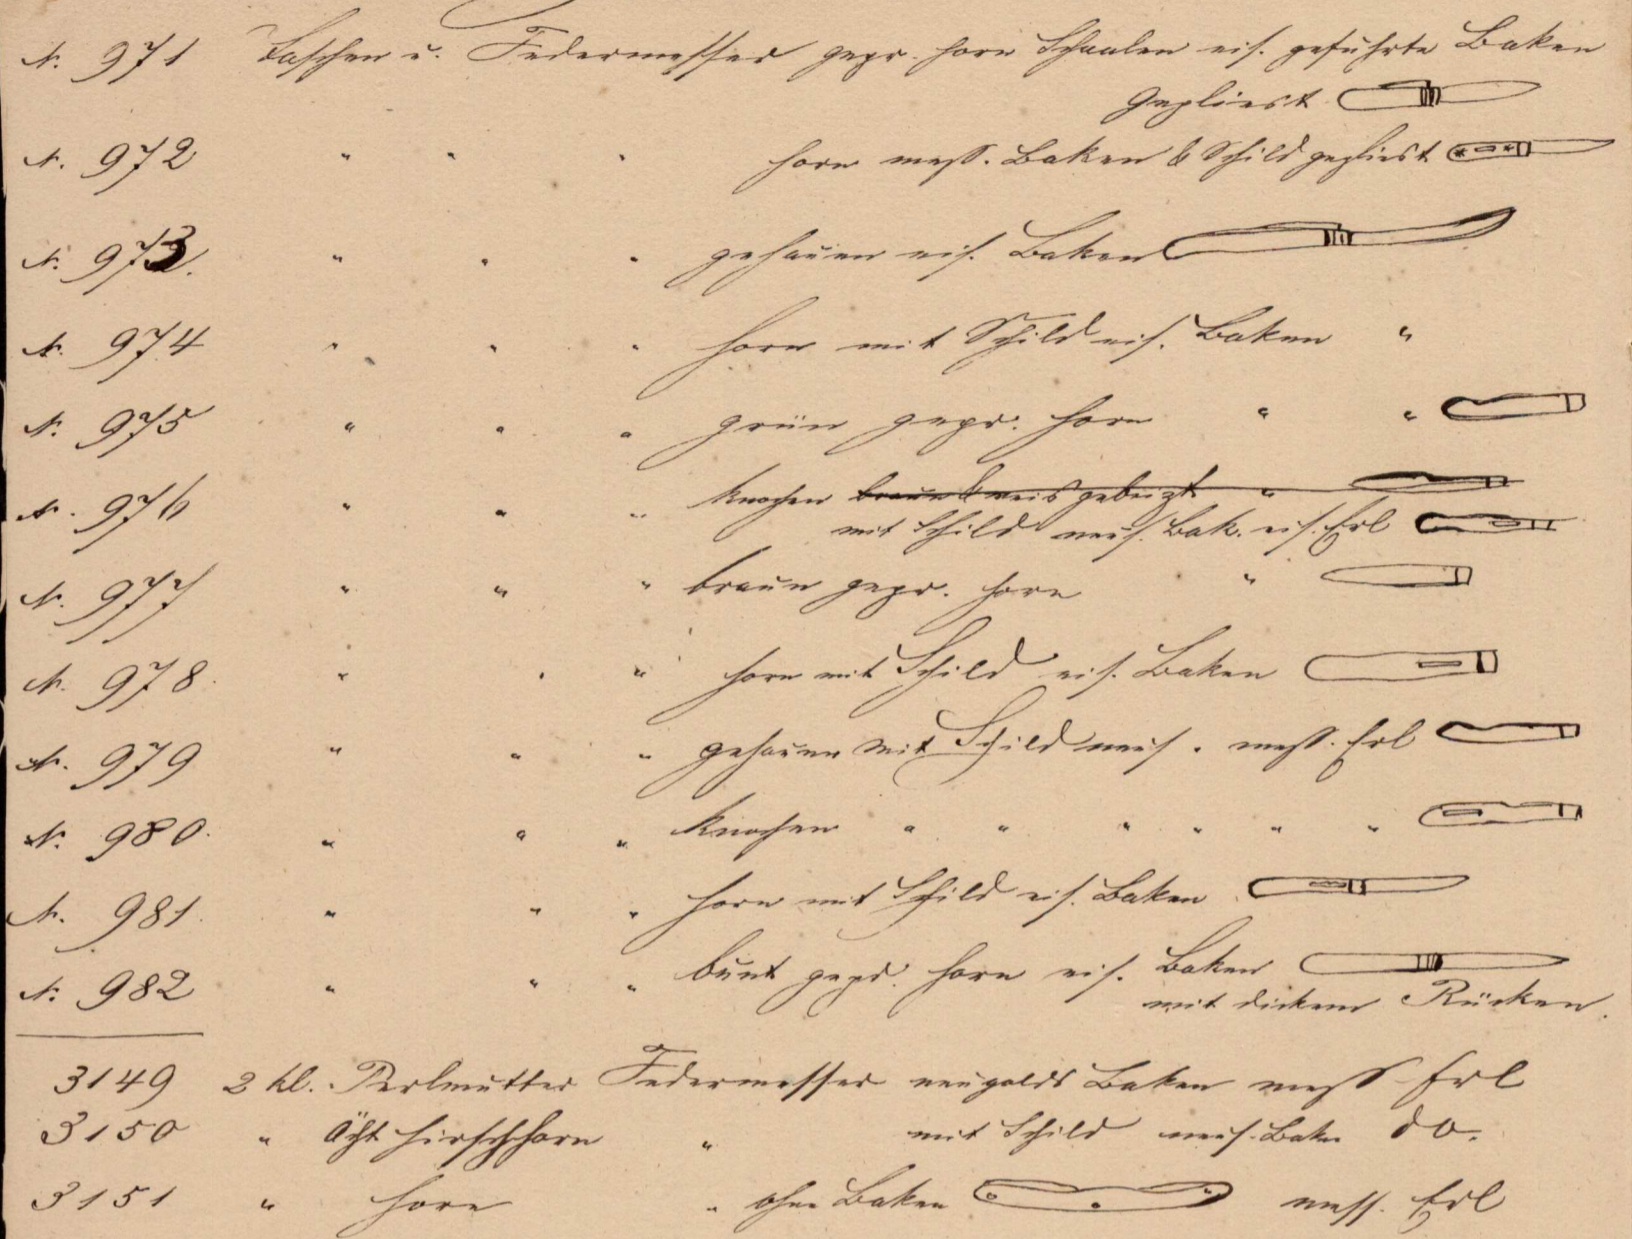 N. 971 Taschen u. Federmesser gepr. Horn Schaalen eis. geführte Baken
Gepliest
N. 972 " " " Horn mess. Baken & Schild gepliest
N. 973. " " " gehauen eis. Baken
N. 974 " " " Horn mit Schild eis. Baken "
N. 975 " " " grün gepr. Horn " "
N. 976 " " " Knochen braun & weis gebeizt "
mit Schild neus. Bak. eis. Erl
N. 977 " " " braun gepr. Horn "
N. 978. " " " Horn mit Schild eis. Baken
N. 979 " " " gehauen mit Schild neus. mess. Erl
N. 980. " " " Knochen " " " " " "
N. 981. " " " Horn mit Schild eis. Baken
N. 982 " " " bunt gepr. Horn eis. Baken
mit dickem Rücken.
3149 2 kl. Perlmutter Federmesser neugolds Baken mess Erl
3150 " Ächt Hirschhorn " mit Schild neus. Bak. do.
3151 " Horn " ohne Baken mess. Erl